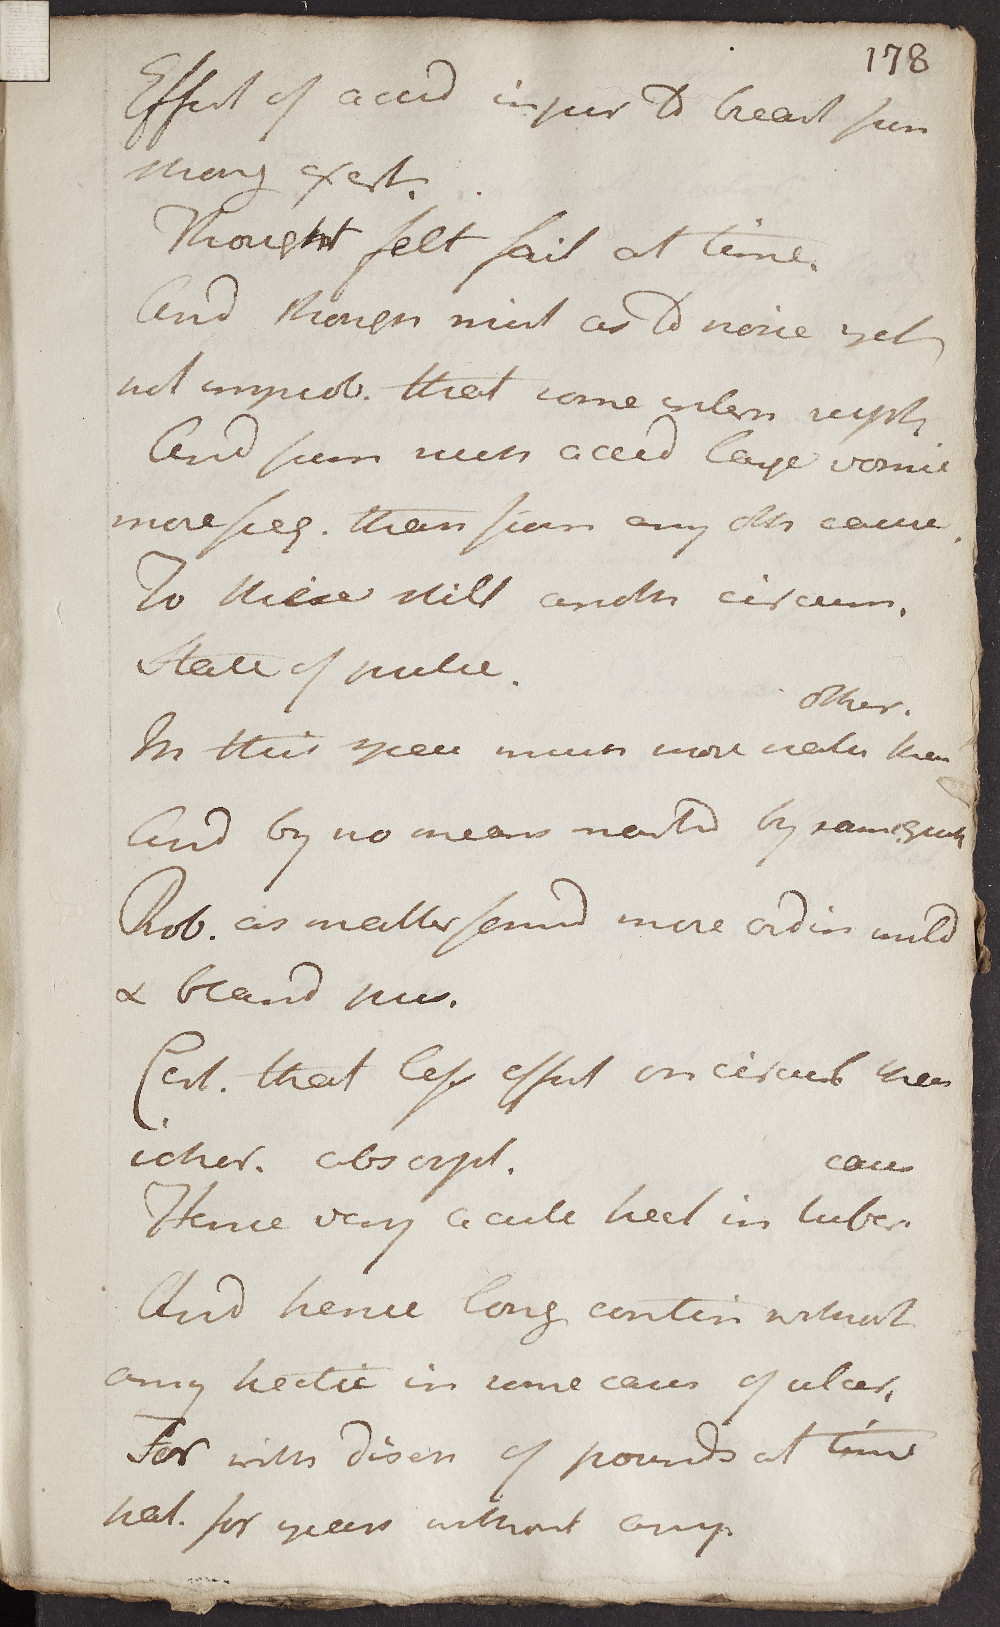 178
Effect of accid injur to breast from
strong exert.
Thought felt fail at time.
And though mist as to noise yet
not improb. that some intern rupt.
And from such accid large vomic
more freq. than from any oth cause.
To these still anoth circum.
State of pulse.
other.
In this year much more natur than
And by no means martd by same
Prob. as matter formd more ordin mild
& bland pus.
Cert. that less effect on circul than
ichor. absorpt.
cases
Hence very acute hect in tuber.
And hence long contin without
any hectic in some cases of ulcer.
For with disch of pounds at time
hect. for years without any.